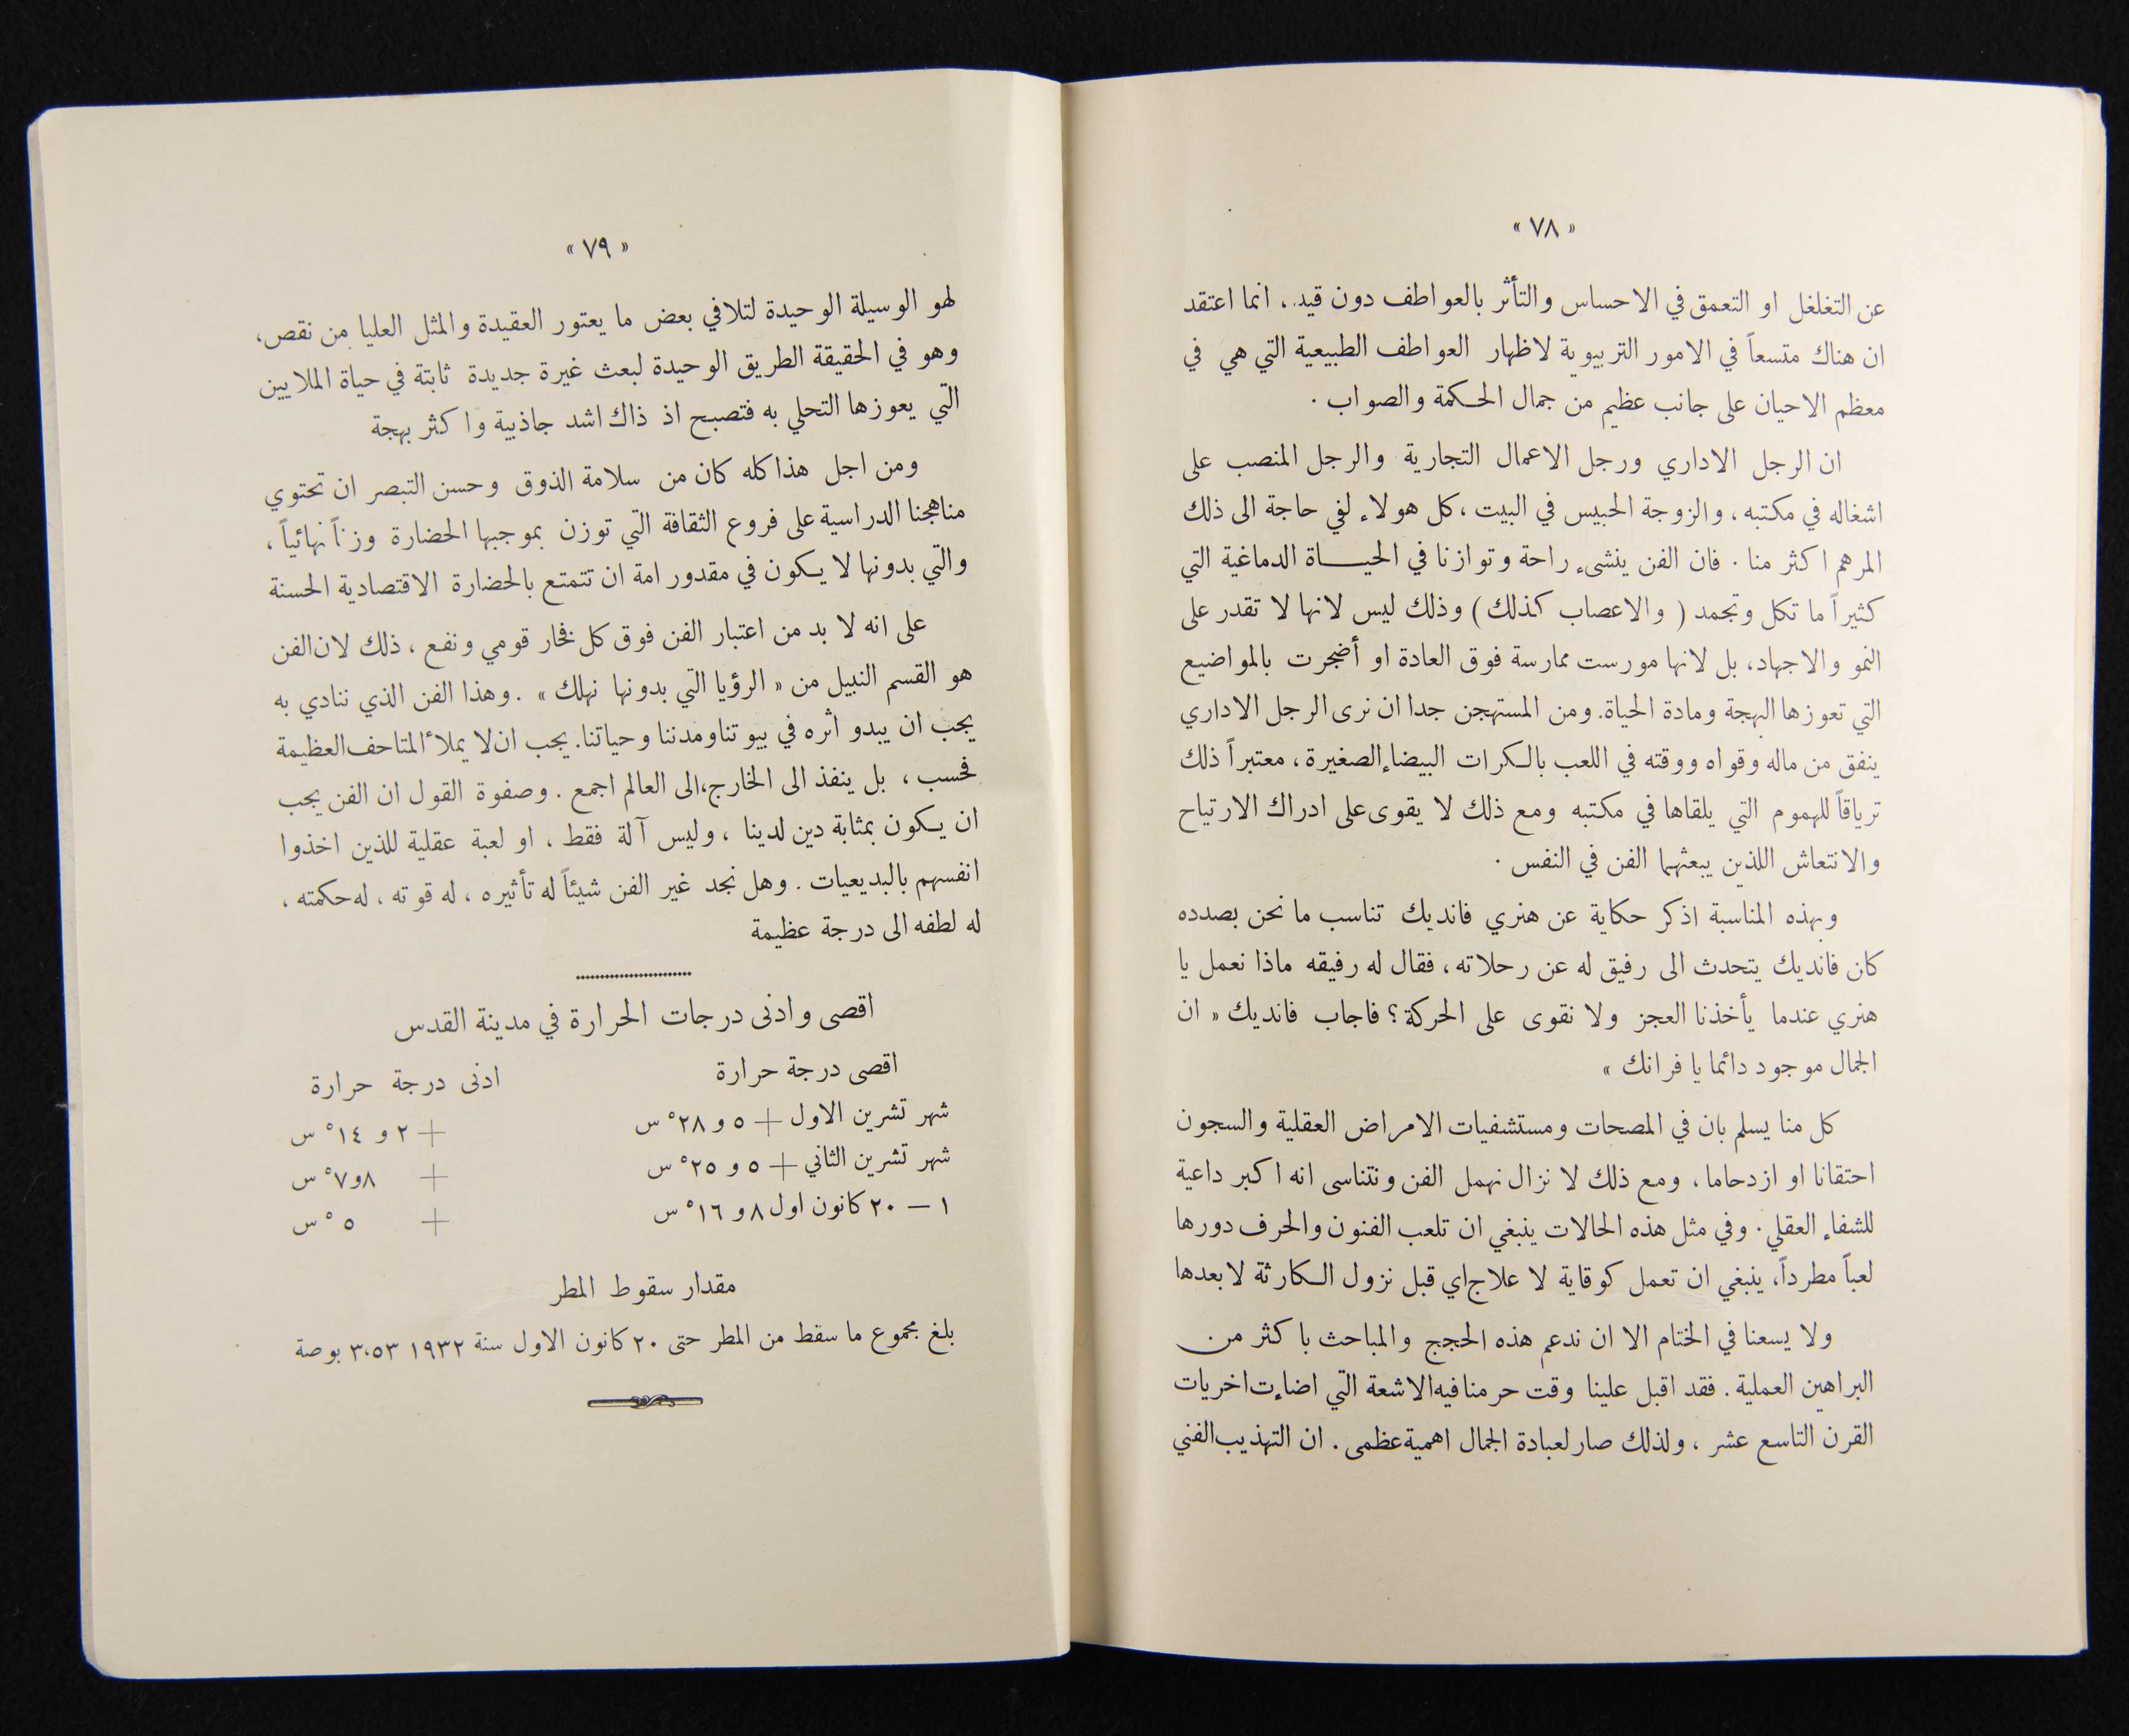 « ٧٨ »
عن التغلغل او التعمق في الاحساس والتأثر بالعواطف دون قيد، انما اعتقد
ان هناك متسعاً في الامور التربيوية لاظهار العواطف الطبيعية التي هي في
معظم الاحيان على جانب عظيم من جمال الحكمة والصواب .
ان الرجل الاداري ورجل الاعمال التجارية والرجل المنصب على
اشغاله في مكتبه، والزوجة الحبيس في البيت، كل هولاء لفي حاجة الى ذلك
المرهم اكثر منا . فان الفن ينشىء راحة وتوازنا في الحيــاة الدماغية التي
كثيراً ما تكل وتجمد ( والاعصاب كذلك ) وذلك ليس لانها لا تقدر على
النمو والاجهاد، بل لانها مورست ممارسة فوق العادة او أضجرت بالمواضيع
التي تعوزها البهجة ومادة الحياة. ومن المستهجن جدا ان نرى الرجل الاداري
ينفق من ماله وقواه ووقته في اللعب بالكرات البيضاء الصغيرة، معتبراً ذلك
ترياقاً للهموم التي يلقاها في مكتبه ومع ذلك لا يقوى على ادراك الارتياح
والانتعاش اللذين يبعثهما الفن في النفس .
وبهذه المناسبة اذكر حكاية عن هنري فانديك تناسب ما نحن بصدده
كان فانديك يتحدث الى رفيق له عن رحلاته، فقال له رفيقه ماذا نعمل يا
هنري عندما يأخذنا العجز ولا نقوى على الحركة؟ فاجاب فانديك « ان
الجمال موجود دائما يا فرانك »
كل منا يسلم بان في المصحات ومستشفيات الامراض العقلية والسجون
احتقانا او ازدحاما، ومع ذلك لا نزال نهمل الفن ونتناسى انه اكبر داعية
للشفاء العقلي . وفي مثل هذه الحالات ينبغي ان تلعب الفنون والحرف دورها
لعباً مطرداً، ينبغي ان تعمل كوقاية لا علاج اي قبل نزول الكارثة لا بعدها
ولا يسعنا في الختام الا ان ندعم هذه الحجج والمباحث باكثر من
البراهين العملية . فقد اقبل علينا وقت حرمنا فيه الاشعة التي اضاءت اخريات
القرن التاسع عشر ، ولذلك صار لعبادة الجمال اهمية عظمى . ان التهذيب الفني
« ٧٩ »
لهو الوسيلة الوحيدة لتلافي بعض ما يعتور العقيدة والمثل العليا من نقص،
وهو في الحقيقة الطريق الوحيدة لبعث غيرة جديدة ثابتة في حياة الملايين
التي يعوزها التحلي به فتصبح اذ ذاك اشد جاذبية واكثر بهجة
ومن اجل هذا كله كان من سلامة الذوق وحسن التبصر ان تحتوي
مناهجنا الدراسية على فروع الثقافة التي توزن بموجبها الحضارة وزناً نهائياً ،
والتي بدونها لا يكون في مقدور امة ان تتمتع بالحضارة الاقتصادية الحسنة
على انه لا بد من اعتبار الفن فوق كل فخار قومي ونفع ، ذلك لان الفن
هو القسم النبيل من « الرؤيا التي بدونها نهلك » . وهذا الفن الذي ننادي به
يجب ان يبدو اثره في بيوتنا ومدننا وحياتنا. يجب ان لا يملأ المتاحف العظيمة
فحسب ، بل ينفذ الى الخارج، الى العالم اجمع . وصفوة القول ان الفن يجب
ان يكون بمثابة دين لدينا ، وليس آلة فقط ، او لعبة عقلية للذين اخذوا
انفسهم بالبديعيات . وهل نجد غير الفن شيئاً له تأثيره ، له قوته ، له حكمته ،
له لطفه الى درجة عظيمة
اقصى وادنى درجات الحرارة في مدينة القدس
اقصى درجة حرارة ادنى درجة حرارة
شهر تشرين الاول + ٥ و ٢٨° س + ٢ و ١٤° س
شهر تشرين الثاني + ٥ و ٢٥° س + ٨و٧° س
١ — ٢٠ كانون اول ٨ و ١٦° س + ٥° س
مقدار سقوط المطر
بلغ مجموع ما سقط من المطر حتى ٢٠ كانون الاول سنة ١٩٣٢ ٣،٥٣ بوصة